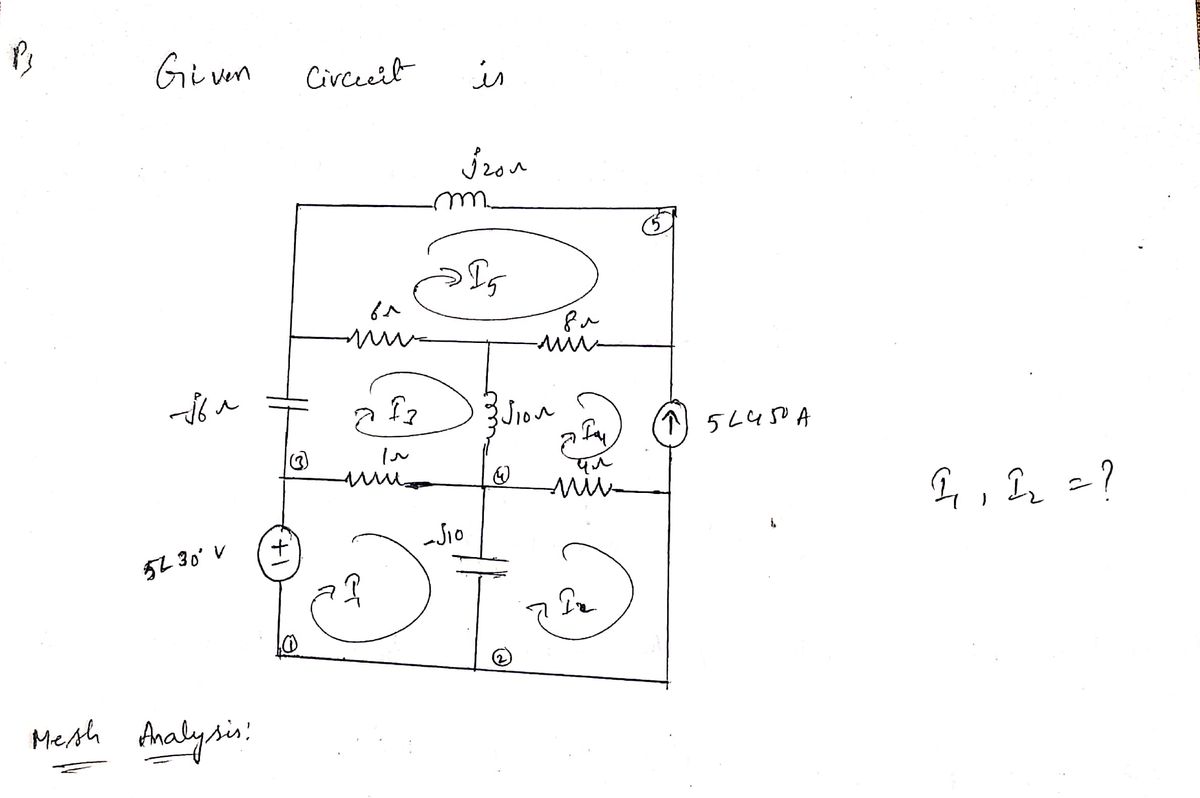 P)
Given circuit is
j20Ω
5
I5
6Ω
8Ω
-j6Ω
I3
j10Ω
I4
5∠450 A
3
1Ω
4
4Ω
I1, I2 = ?
5∠30° V
+
-j10
I1
I2
1
2
Mesh Analysis: